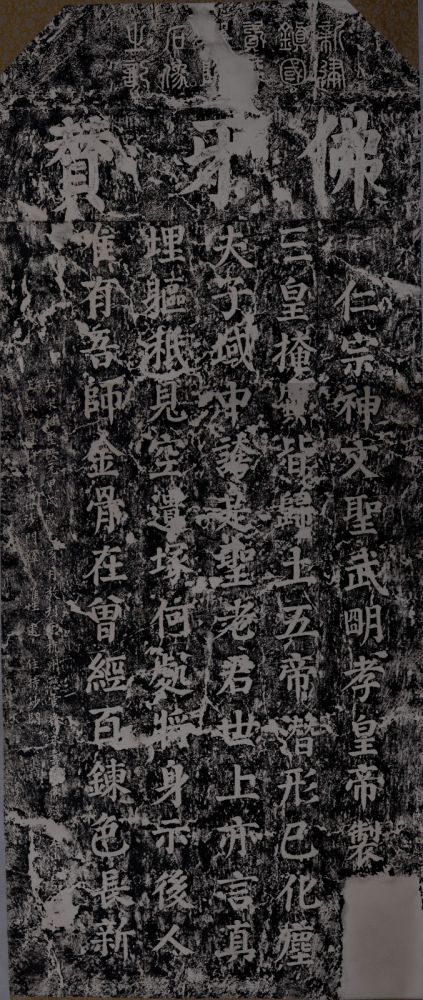 新建
鎮國
石像
之記
佛牙贊
仁宗神文聖武明孝皇帝製
三皇掩質皆歸土五帝潛形已化塵
夫子域中誇是聖老君世上亦言真
埋軀秖見空遺塚何處將身示後人
唯有吾師金骨在曾經百鍊色長新